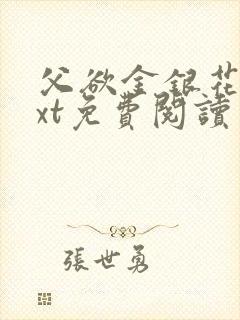 父欲金银花
xt免費閱讀
張世勇